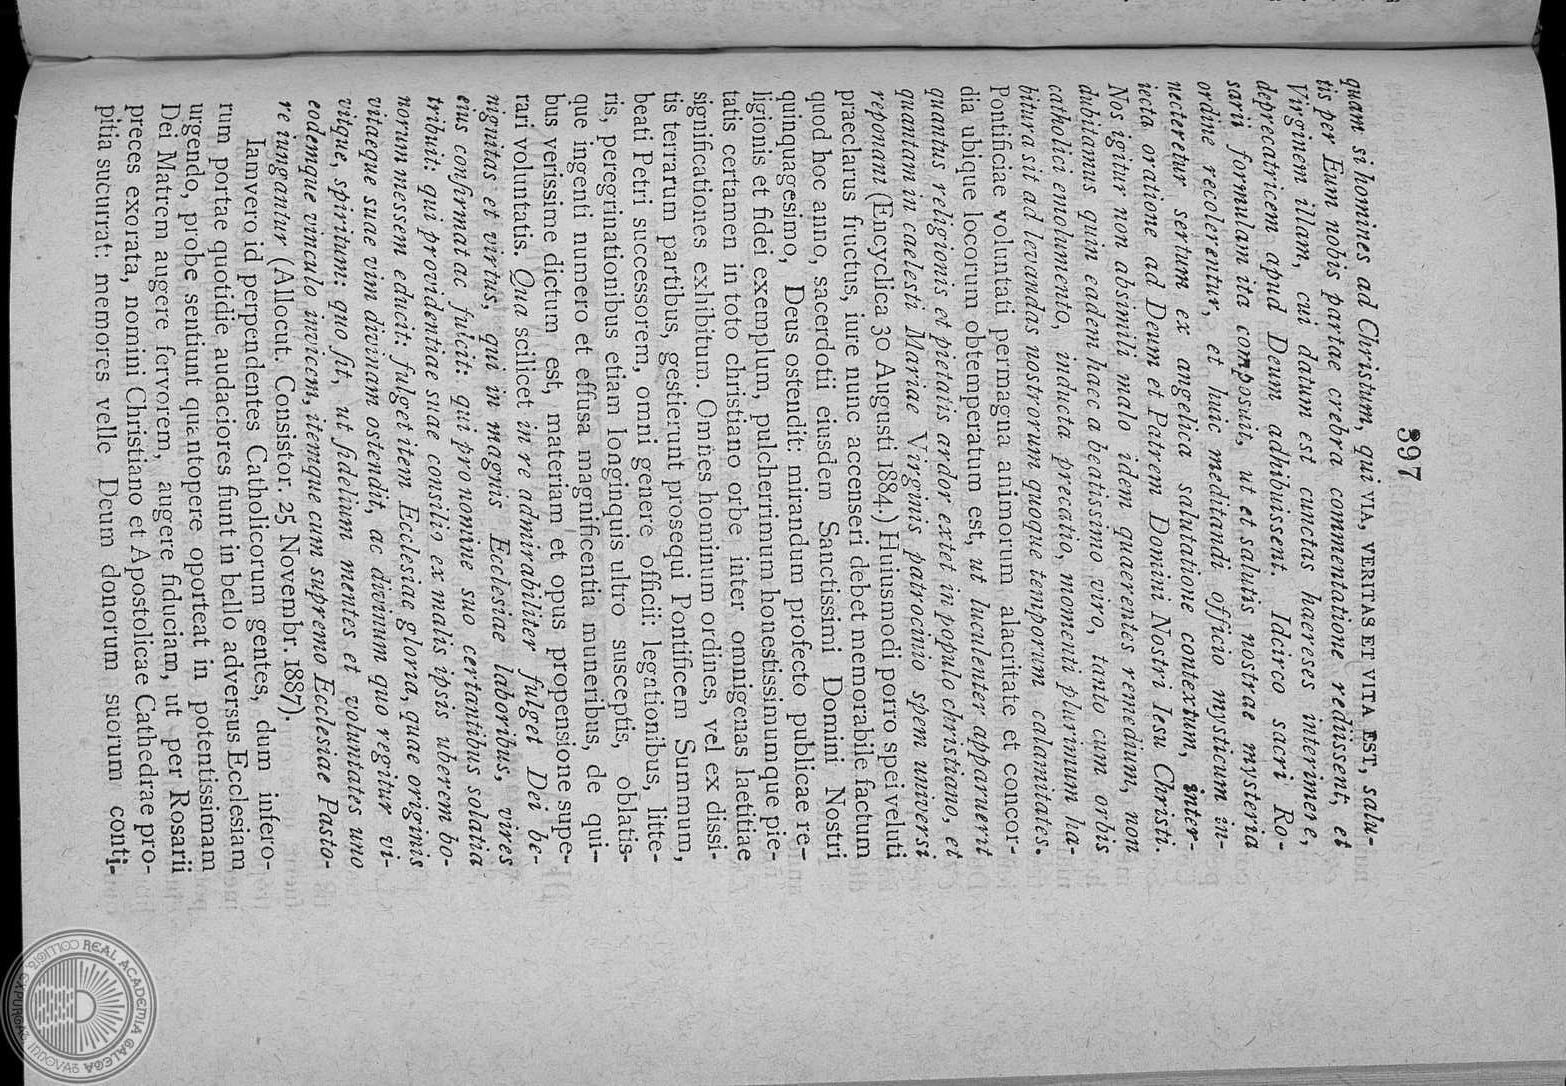 397
quam si homines ad Christum, qui VIA, VERITAS ET VITA EST, salu-
tis per Eum nobis partae crebra commentatione rediissent; et
Virginem illam, cui datum est cunctas haereses interimere,
deprecatricem apud Deum adhibuissent. Idcirco sacri Ro-
sarii formulam ita composuit, ut et salutis nostrae mysteria
ordine recolerentur, et huic meditandi officio mysticum in-
necteretur sertum ex angelica salutatione contextum, inter-
iecta oratione ad Deum et Patrem Domini Nostri Iesu Christi.
Nos igitur non absimili malo idem quaerentes remedium, non
dubitamus quin eadem haec a beatissimo viro, tanto cum orbis
catholici emolumento, inducta precatio, momenti plurimum ha-
bitura sit ad levandas nostrorum quoque temporum calamitates.
Pontificiae voluntati permagna animorum alacritate et concor-
dia ubique locorum obtemperatum est, ut luculenter apparuerit
quantus religionis et pietatis ardor extet in populo christiano, et
quantam in caelesti Mariae Virginis patrocinio spem universi
reponant (Encyclica 30 Augusti 1884.) Huiusmodi porro spei veluti
praeclarus fructus, iure nunc accenseri debet memorabile factum
quod hoc anno, sacerdotii eiusdem Sanctissimi Domini Nostri
quinquagesimo, Deus ostendit: mirandum profecto publicae re-
ligionis et fidei exemplum, pulcherrimum honestissimumque pie-
tatis certamen in toto christiano orbe inter omnigenas laetitiae
significationes exhibitum. Omnes hominum ordines, vel ex dissi-
tis terrarum partibus, gestierunt prosequi Pontificem Summum,
beati Petri successorem, omni genere officii; legationibus, litte-
ris, peregrinationibus etiam longinquis ultro susceptis, oblatis-
que ingenti numero et effusa magnificentia muneribus, de qui-
bus verissime dictum est, materiam et opus propensione supe-
rari voluntatis. Qua scilicet in re admirabiliter fulget Dei be-
nignitas et virtus, qui in magnis Ecclesiae laboribus, vires
eius confirmat ac fulcit: qui pro nomine suo certantibus solatia
tribuit: qui providentiae suae consilio ex malis ipsis uberem bo-
norum messem educit: fulget item Ecclesiae gloria, quae originis
vitaeque suae vim divinam ostendit, ac divinum quo regitur vi-
vitque, spiritum: quo fit, ut fidelium mentes et voluntates uno
eodemque vinculo invicem, itemque cum supremo Ecclesiae Pasto-
re iungantur (Allocut. Consistor. 25 Novembr. 1887).
Iamvero id perpendentes Catholicorum gentes, dum infero-
rum portae quotidie audaciores fiunt in bello adversus Ecclesiam
urgendo, probe sentiunt quantopere oporteat in potentissimam
Dei Matrem augere fervorem, augere fiduciam, ut per Rosarii
preces exorata, nomini Christiano et Apostolicae Cathedrae pro-
pitia sucurrat: memores velle Deum donorum suorum conti-
REAL ACADEMIA GALEGA